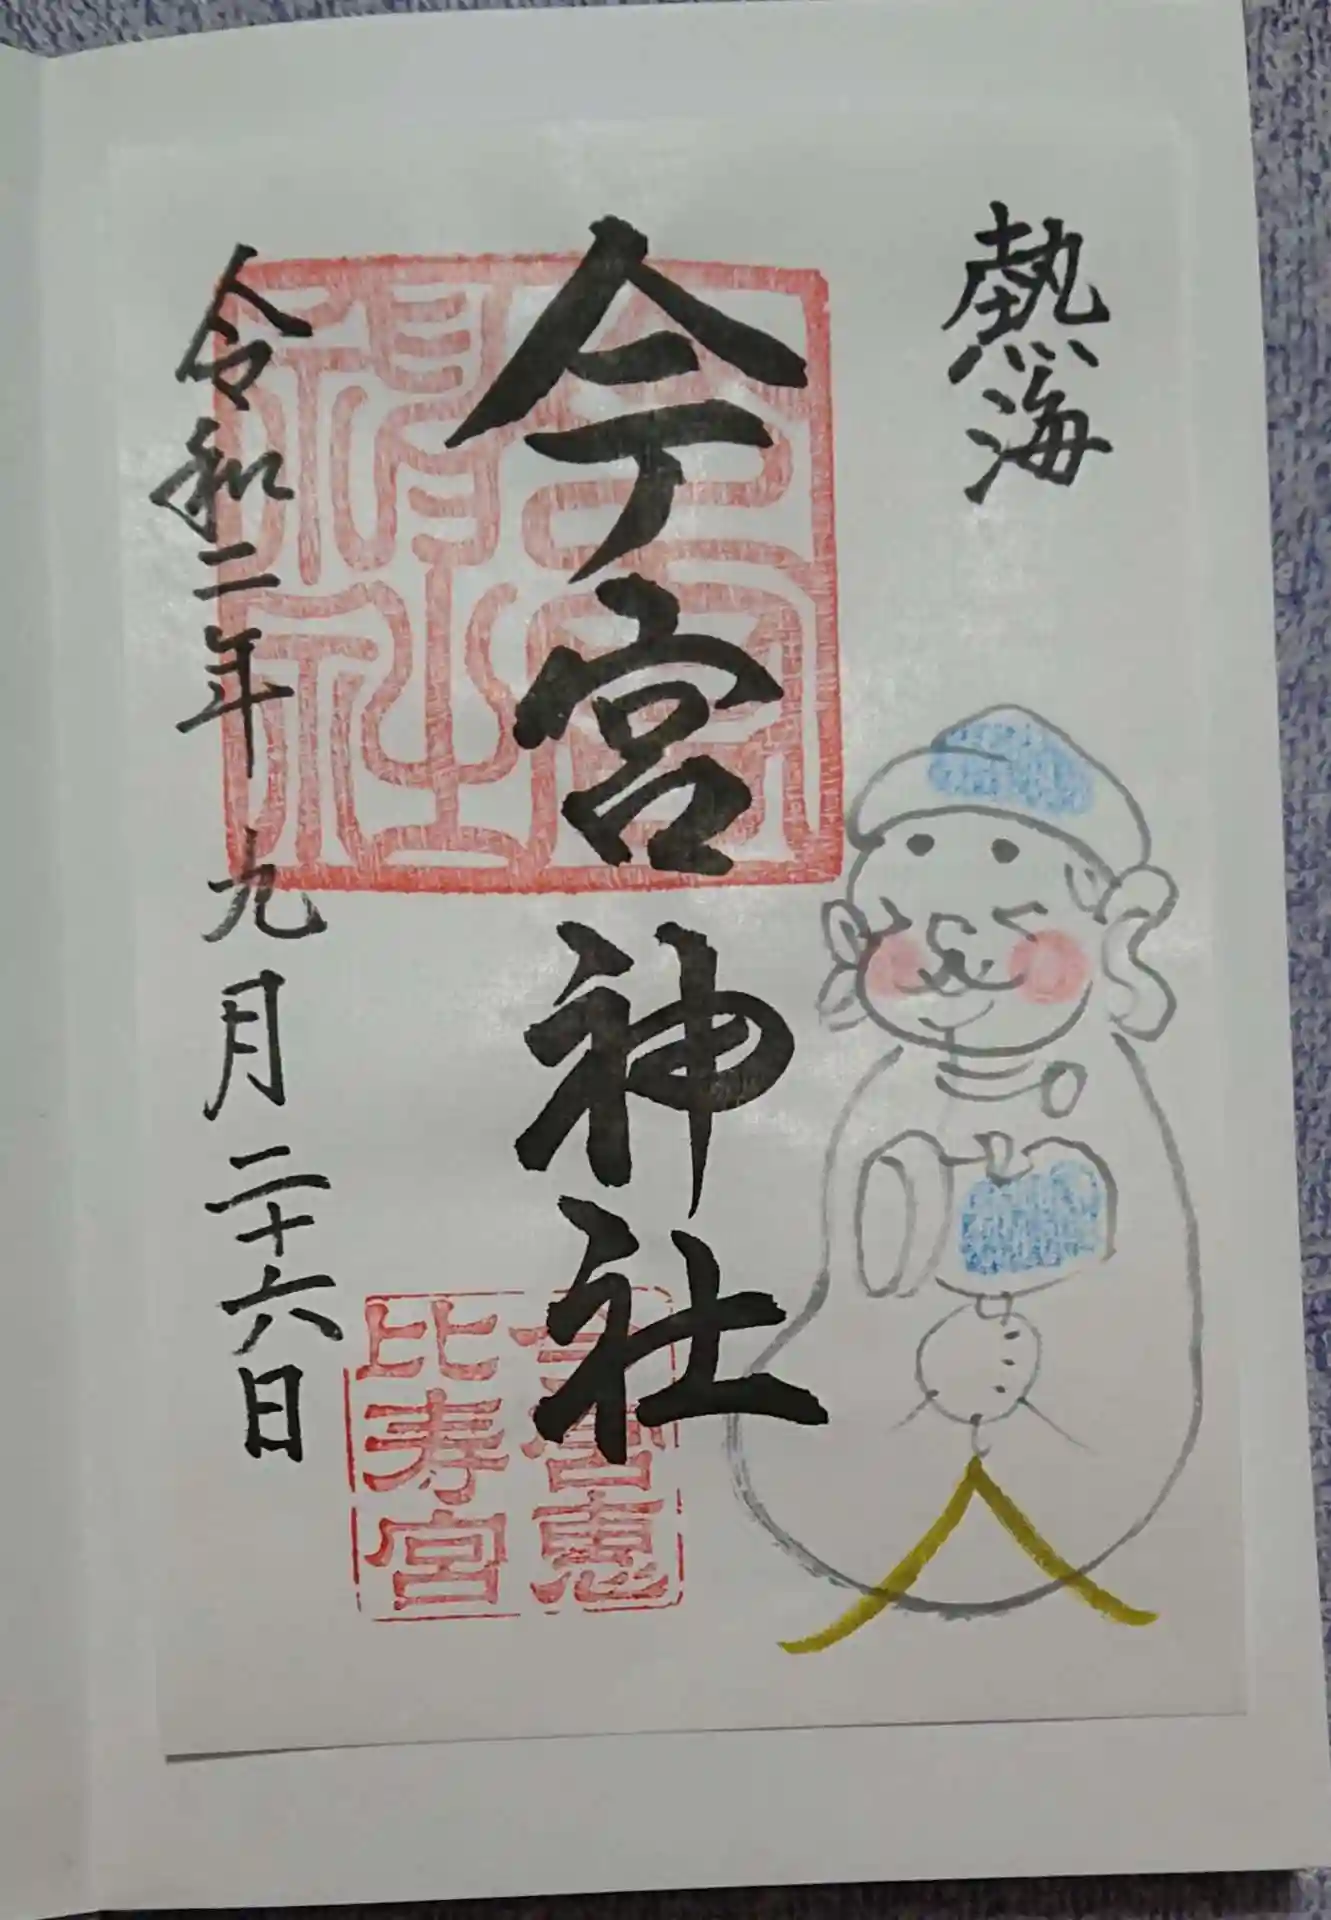 熱海
今宮神社
令和二年九月二十六日
今宮神社
今宮恵
比寿宮